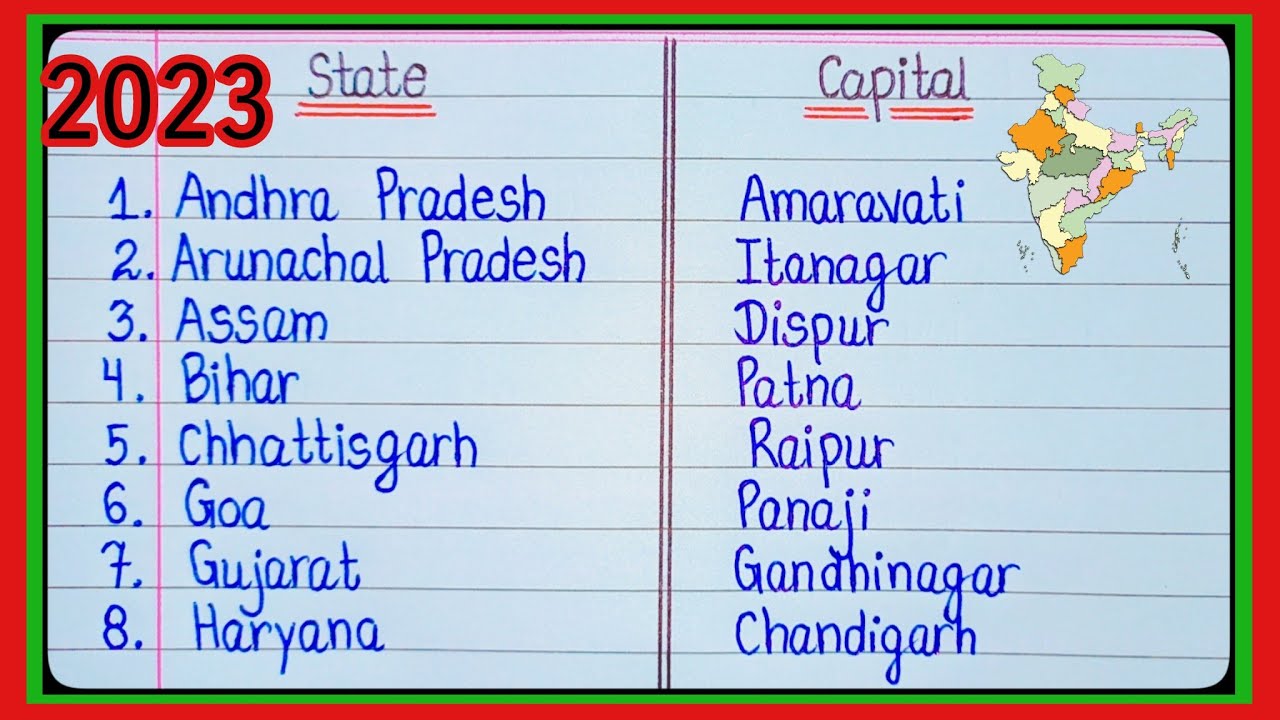 2023 State Capital
1. Andhra Pradesh Amaravati
2. Arunachal Pradesh Itanagar
3. Assam Dispur
4. Bihar Patna
5. Chhattisgarh Raipur
6. Goa Panaji
7. Gujarat Gandhinagar
8. Haryana Chandigarh